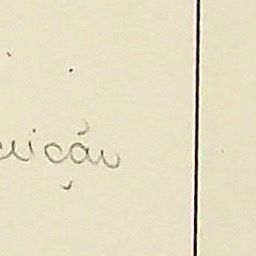 uição